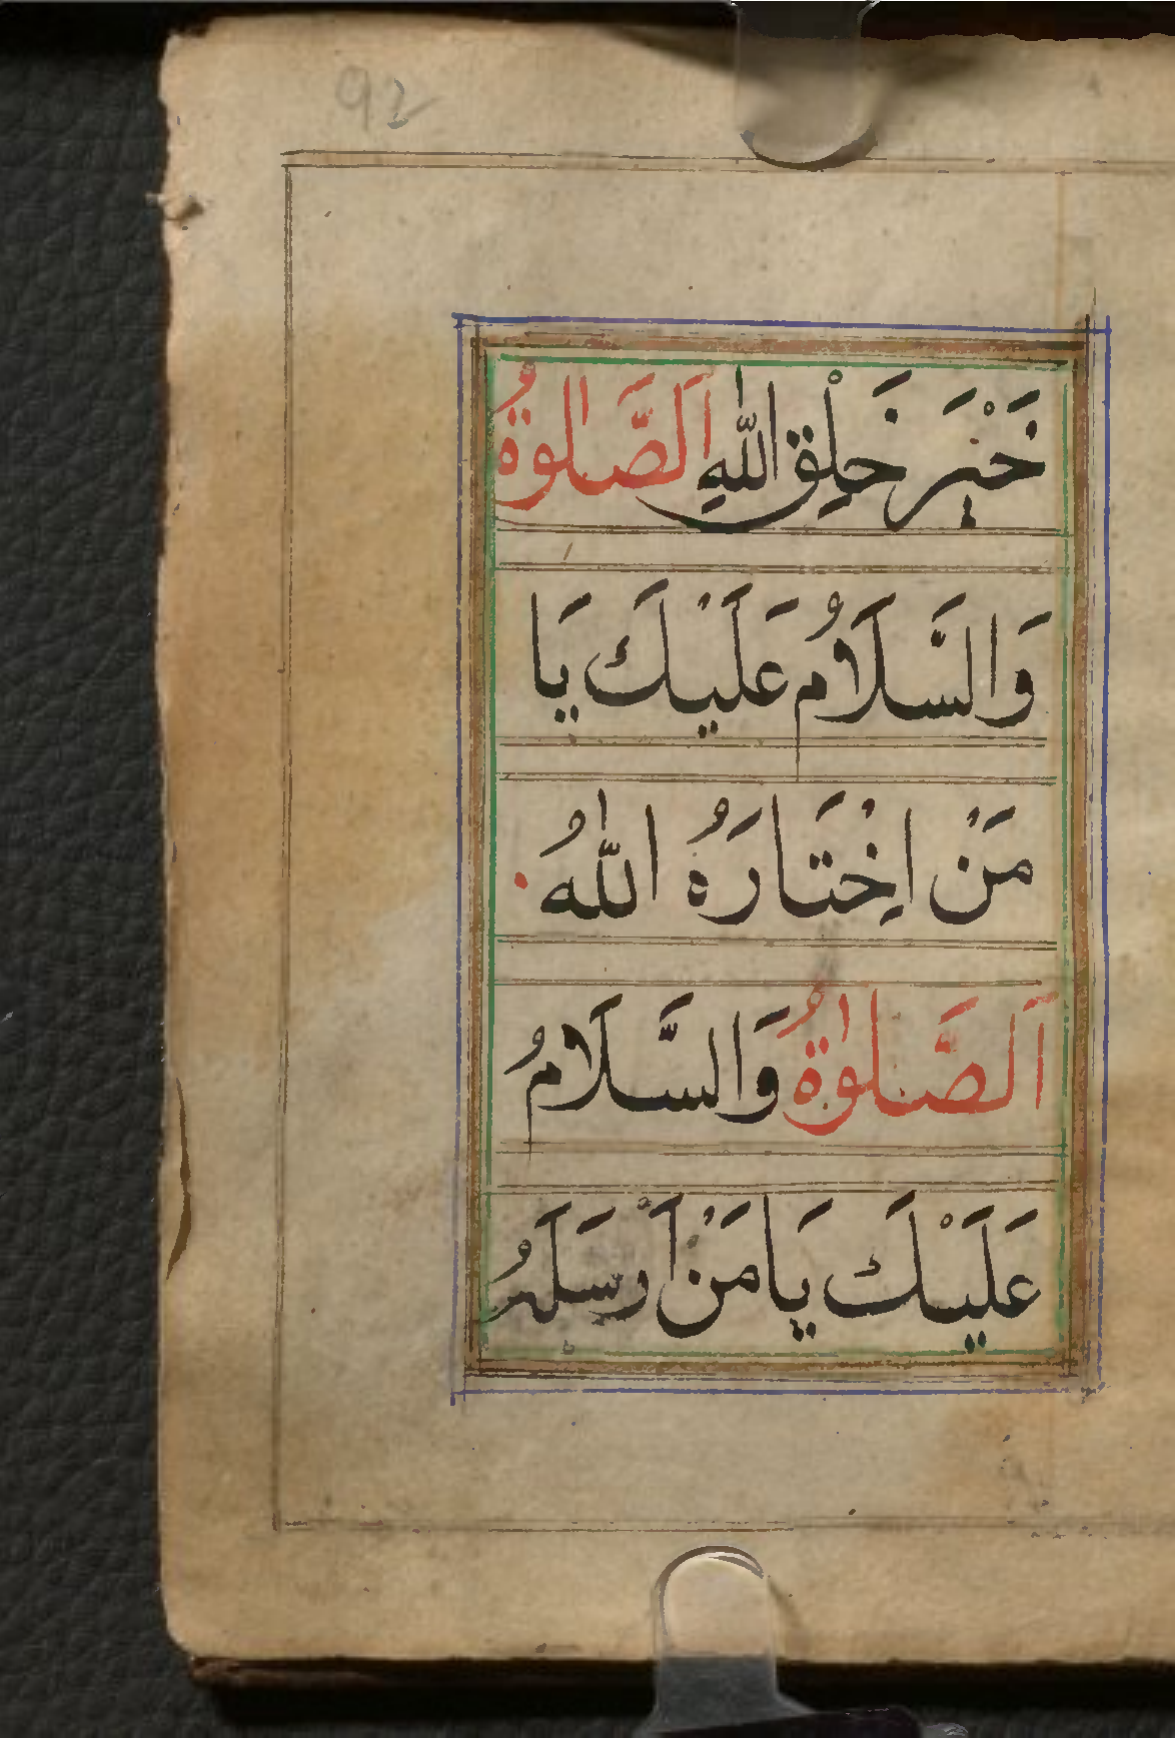 92
خَيْرَ خَلْقِ اللّٰهِ اَلصَّلٰوةُ
وَالسَّلَامُ عَلَيْكَ يَا
مَنْ اِخْتَارَهُ اللّٰهُ
اَلصَّلٰوةُ وَالسَّلَامُ
عَلَيْكَ يَا مَنْ اَرْسَلَهُ